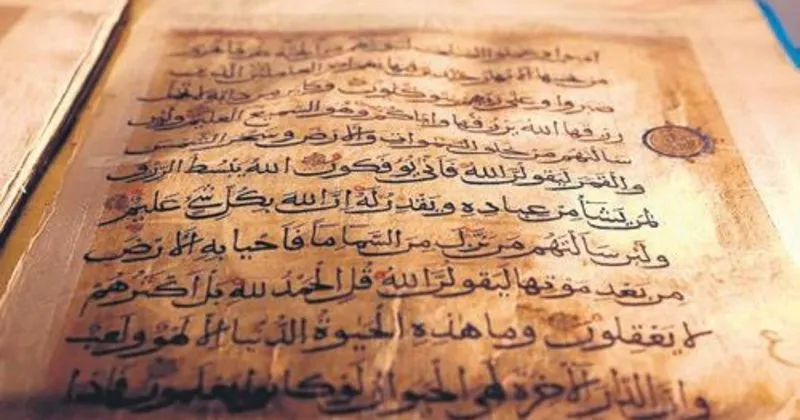 امنوا وعملوا الصالحات لنبوئنهم من الجنة غرفا تجري
من تحتها الانهار خالدين فيها نعم اجر العاملين الذين
صبروا وعلى ربهم يتوكلون وكاين من دابة لا تحمل
رزقها الله يرزقها واياكم وهو السميع العليم ولئن
سالتهم من خلق السموات والارض وسخر الشمس
والقمر ليقولن الله فانى يوفكون الله يبسط الرزق
لمن يشا من عباده ويقدر له ان الله بكل شي عليم
ولئن سالتهم من نزل من السما ما فاحيا به الارض
من بعد موتها ليقولن الله قل الحمد لله بل اكثرهم
لا يعقلون وما هذه الحيوة الدنيا الا لهو ولعب
وان الدار الاخرة لهي الحيوان لو كانوا يعلمون فاذا